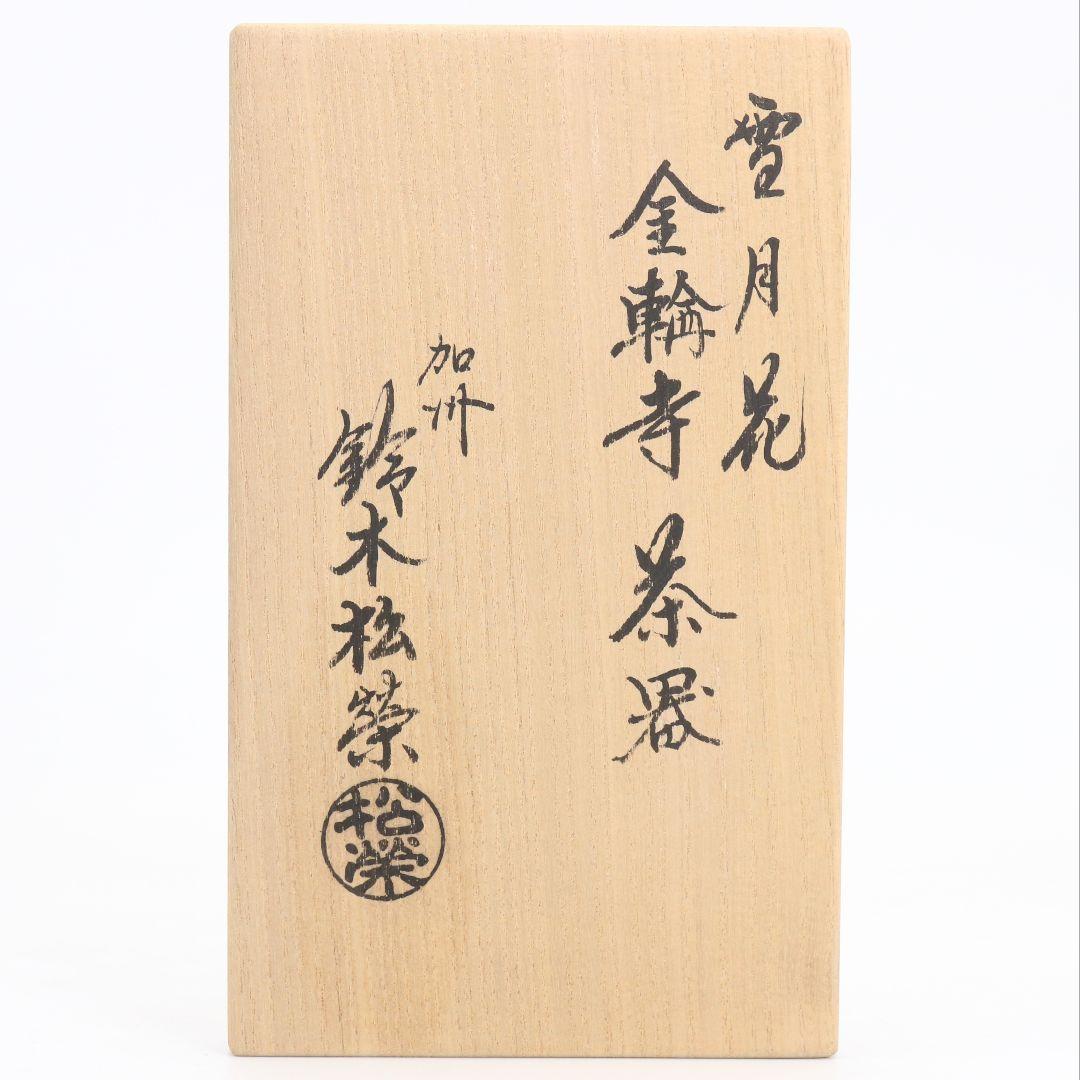 雪月花
金輪寺茶器
加州
鈴木松榮
松榮